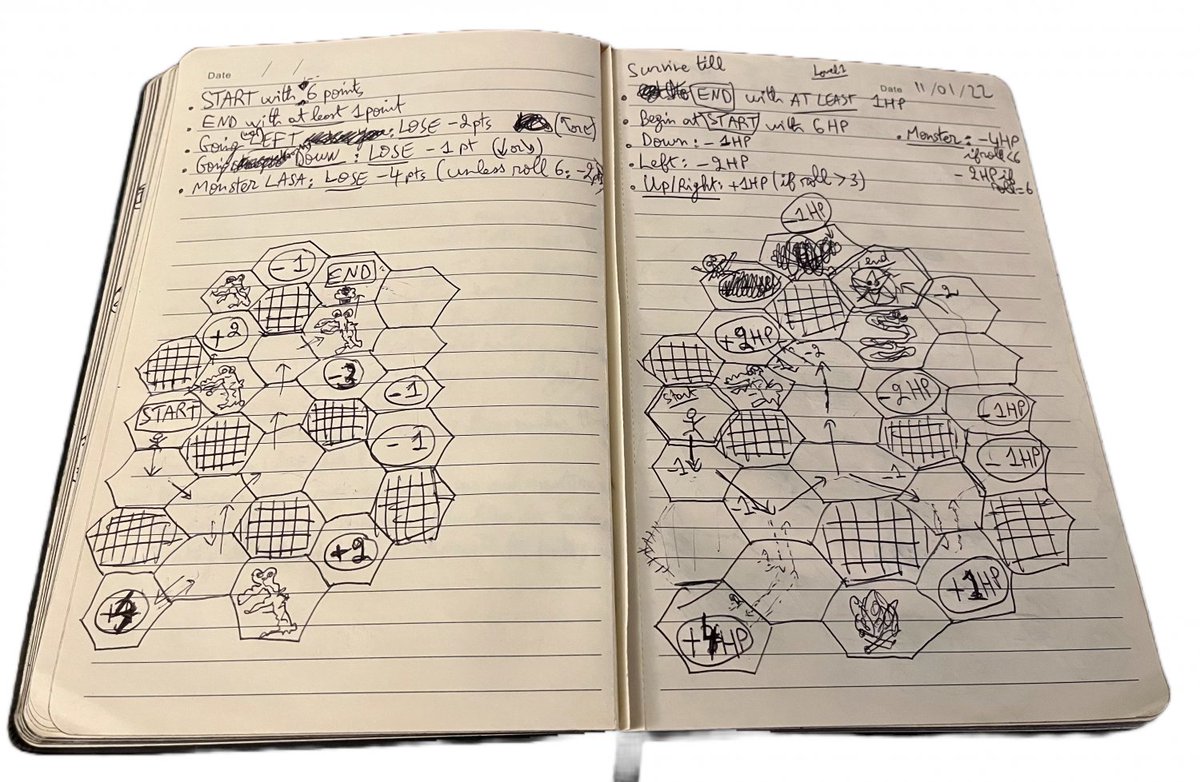 Date / /
• START with 6 points
• END with at least 1 point
• Going LEFT : LOSE -2pts (↖or↙)
• Going DOWN : LOSE -1 pt (↓or↘)
• Monster LASA: LOSE -4pts (unless roll 6: -2pts)
-1
END
+2
START
-1
-1
+2
Survive till
Level 1
Date 11/01/22
• END with AT LEAST 1HP
• Begin at START with 6HP
• Down: -1HP
• Left: -2HP
• Up/Right: +1HP (if roll >3)
• Monster: -4HP
if roll<6
- 2HP if
roll=6
-1HP
end
-2
+2HP
-2
start
-2HP
-1HP
-1
-1
-1HP
-1
+1HP
+4HP